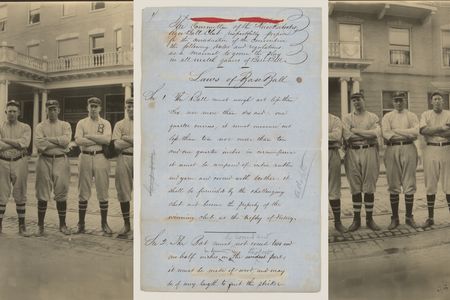 The Committee of the Knickerbocker
Base Ball Club respectfully propose
for the consideration of the Convention
the following rules and regulations
as a manual to govern the play
in all match games of Base Ball.
Laws of Base Ball
Sec 1. The Ball must weigh not less than
six nor more than six and one
quarter ounces, it must measure not
less than ten nor more than ten
and one quarter inches in circumference
it must be composed of india rubber
and yarn and covered with leather. it
shall be furnished by the challenging
club and become the property of the
winning club as the trophy of victory.
Sec 2. The Bat must not exceed two and
one half inches in the widest part,
it must be made of wood and may
be of any length to suit the striker
B